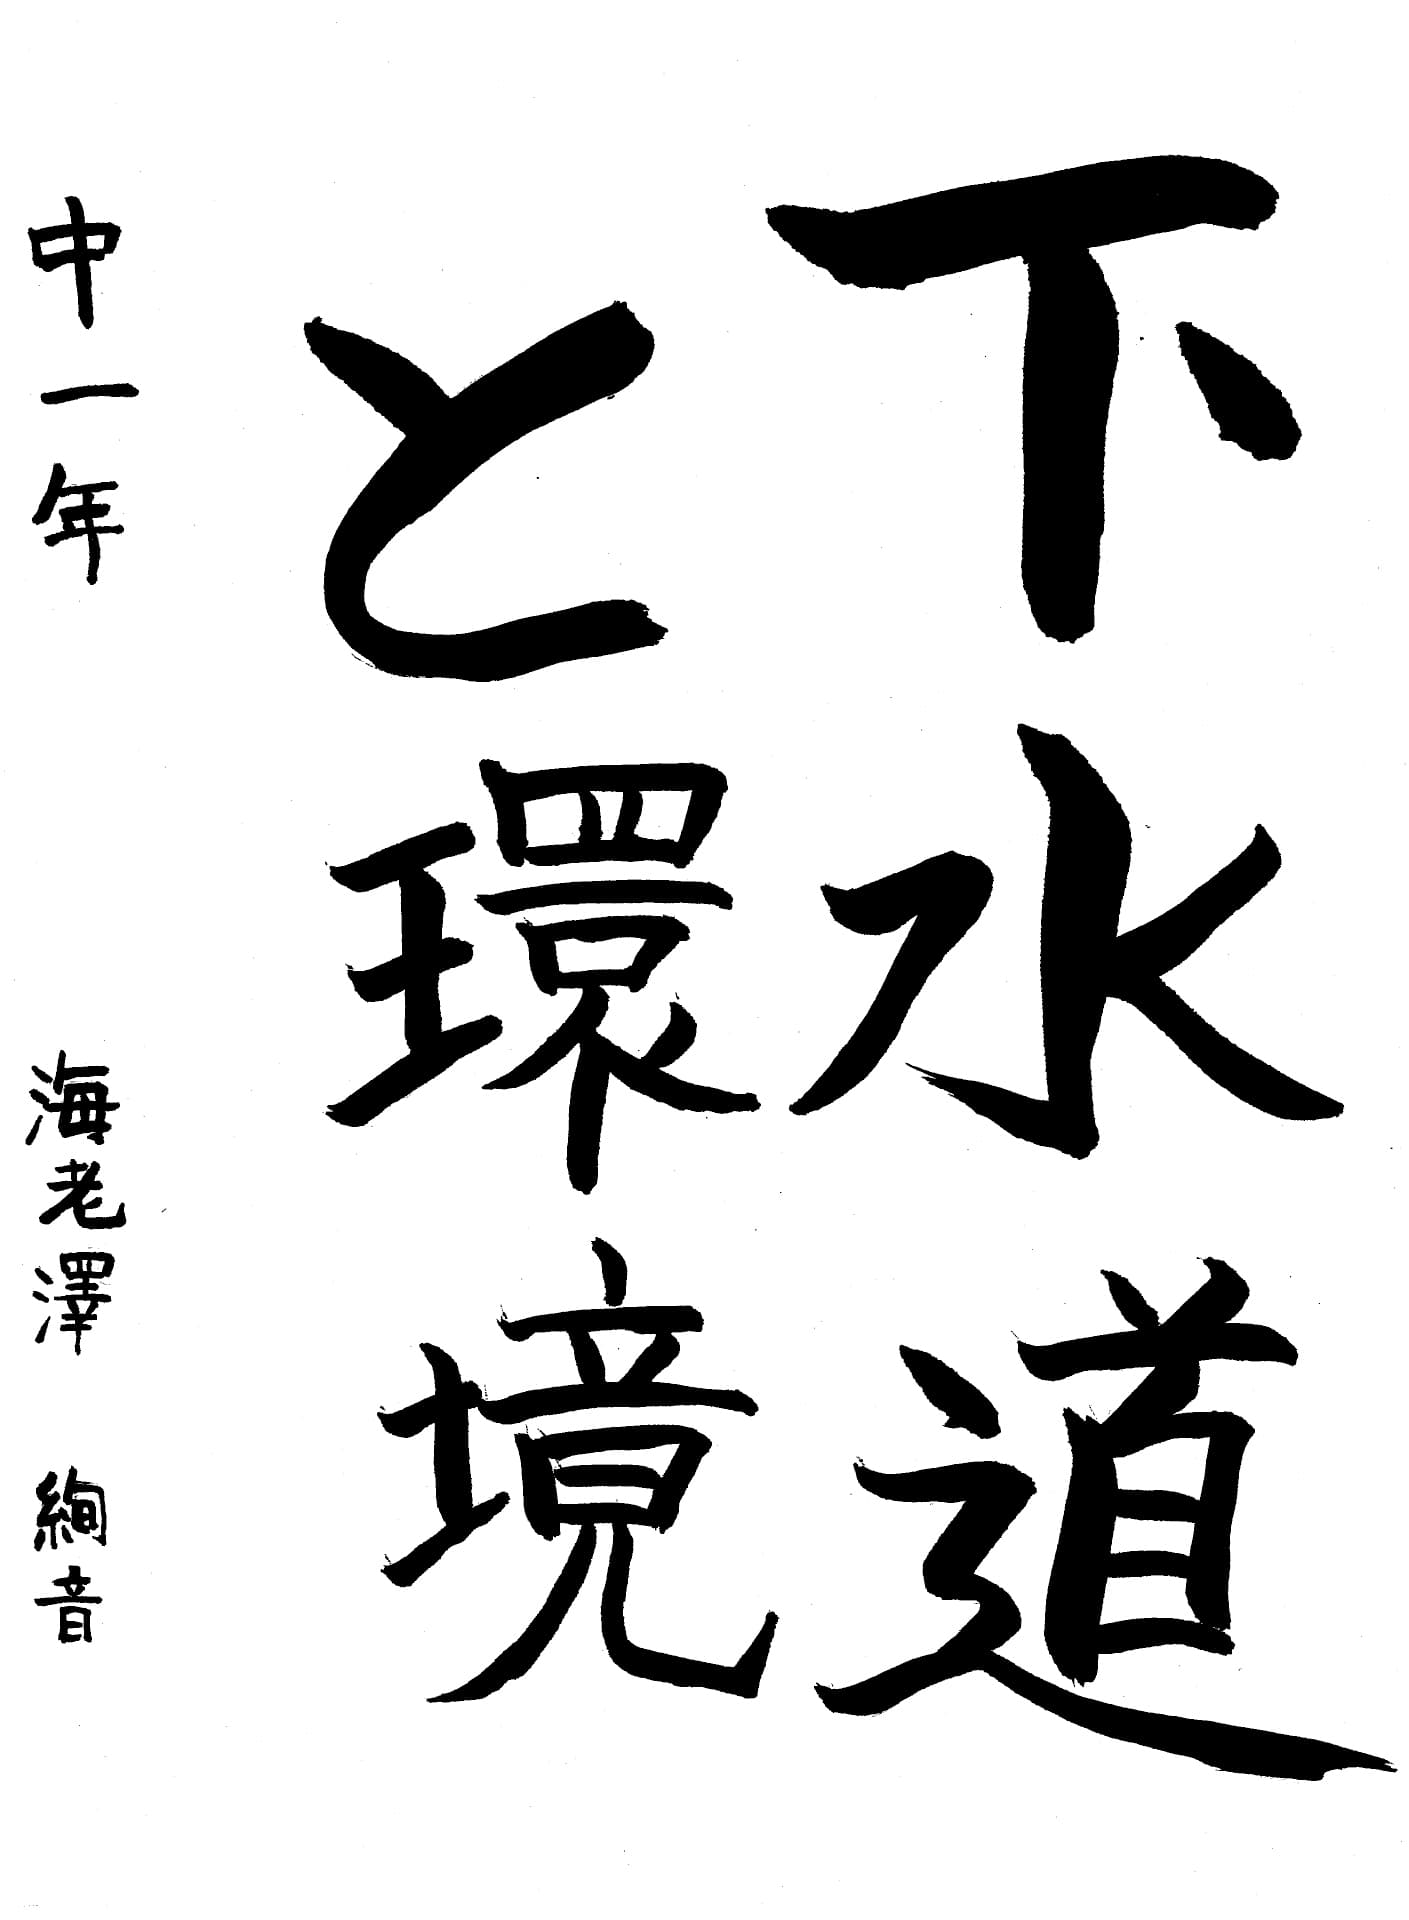 下水道
と環境
中一年 海老澤 絢音